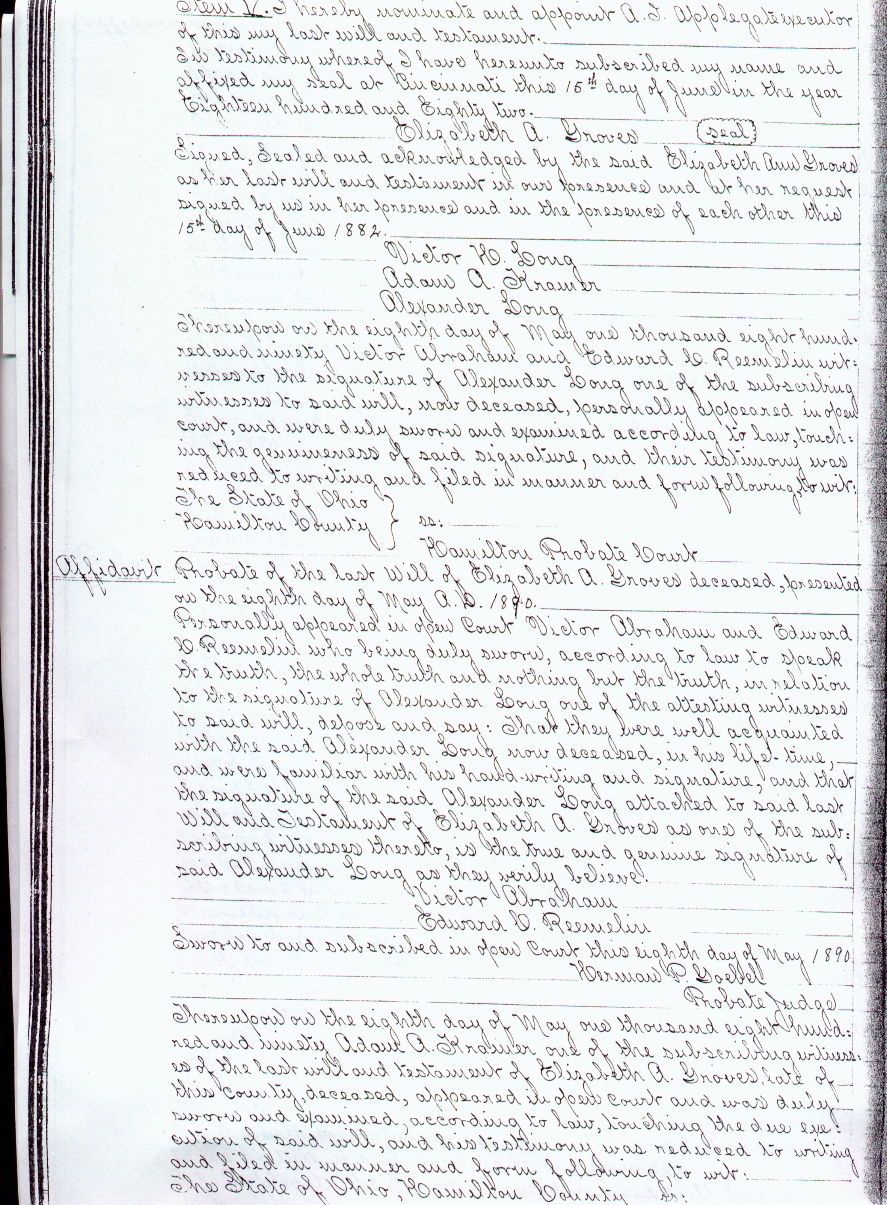 Item V. I hereby nominate and appoint A. J. Applegate executor
of this my last will and testament.
In testimony whereof I have hereunto subscribed my name and
affixed my seal at Cincinnati this 15th day of June in the year
Eighteen hundred and Eighty two.
Elizabeth A. Groves (seal)
Signed, Sealed and acknowledged by the said Elizabeth Ann Groves
as her last will and testament in our presence and at her request
signed by us in her presence and in the presence of each other this
15th day of June 1882.
Victor H. Long
Adam A. Kramer
Alexander Long
Thereupon on the eighth day of May one thousand eight hund-
red and ninety Victor Abraham and Edward C. Reemelin wit:
nesses to the signature of Alexander Long one of the subscribing
witnesses to said will, now deceased, personally appeared in open
court, and were duly sworn and examined according to law, touch:
ing the genuineness of said signature, and their testimony was
reduced to writing and filed in manner and form following, to wit:
The State of Ohio
Hamilton County } ss:
Hamilton Probate Court
Affidavit Probate of the last Will of Elizabeth A. Groves deceased, presented
on the eighth day of May A.D. 1890.
Personally appeared in open Court Victor Abraham and Edward
C. Reemelin who being duly sworn, according to law to speak
the truth, the whole truth and nothing but the truth, in relation
to the signature of Alexander Long one of the attesting witnesses
to said will, depose and say: That they were well acquainted
with the said Alexander Long now deceased, in his life-time,
and were familiar with his hand-writing and signature, and that
the signature of the said Alexander Long attached to said last
Will and Testament of Elizabeth A. Groves as one of the sub:
scribing witnesses thereto, is the true and genuine signature of
said Alexander Long as they verily believe.
Victor Abraham
Edward C. Reemelin
Sworn to and subscribed in open Court this eighth day of May 1890
Herman P. Goebel
Probate Judge
Thereupon on the eighth day of May one thousand eight hund:
red and ninety Adam A. Kramer one of the subscribing witness:
es of the last will and testament of Elizabeth A. Groves, late of
this county, deceased, appeared in open court and was duly
sworn and examined, according to law, touching the due exe:
cution of said will, and his testimony was reduced to writing
and filed in manner and form following, to wit:
The State of Ohio, Hamilton County ss: